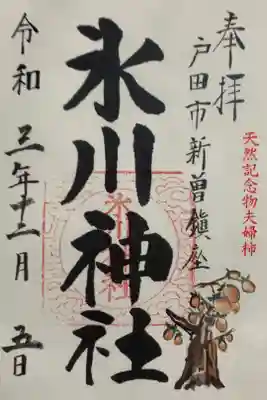 奉拝
戸田市新曽鎮座
天然記念物夫婦柿
氷川神社
令和三年十二月五日